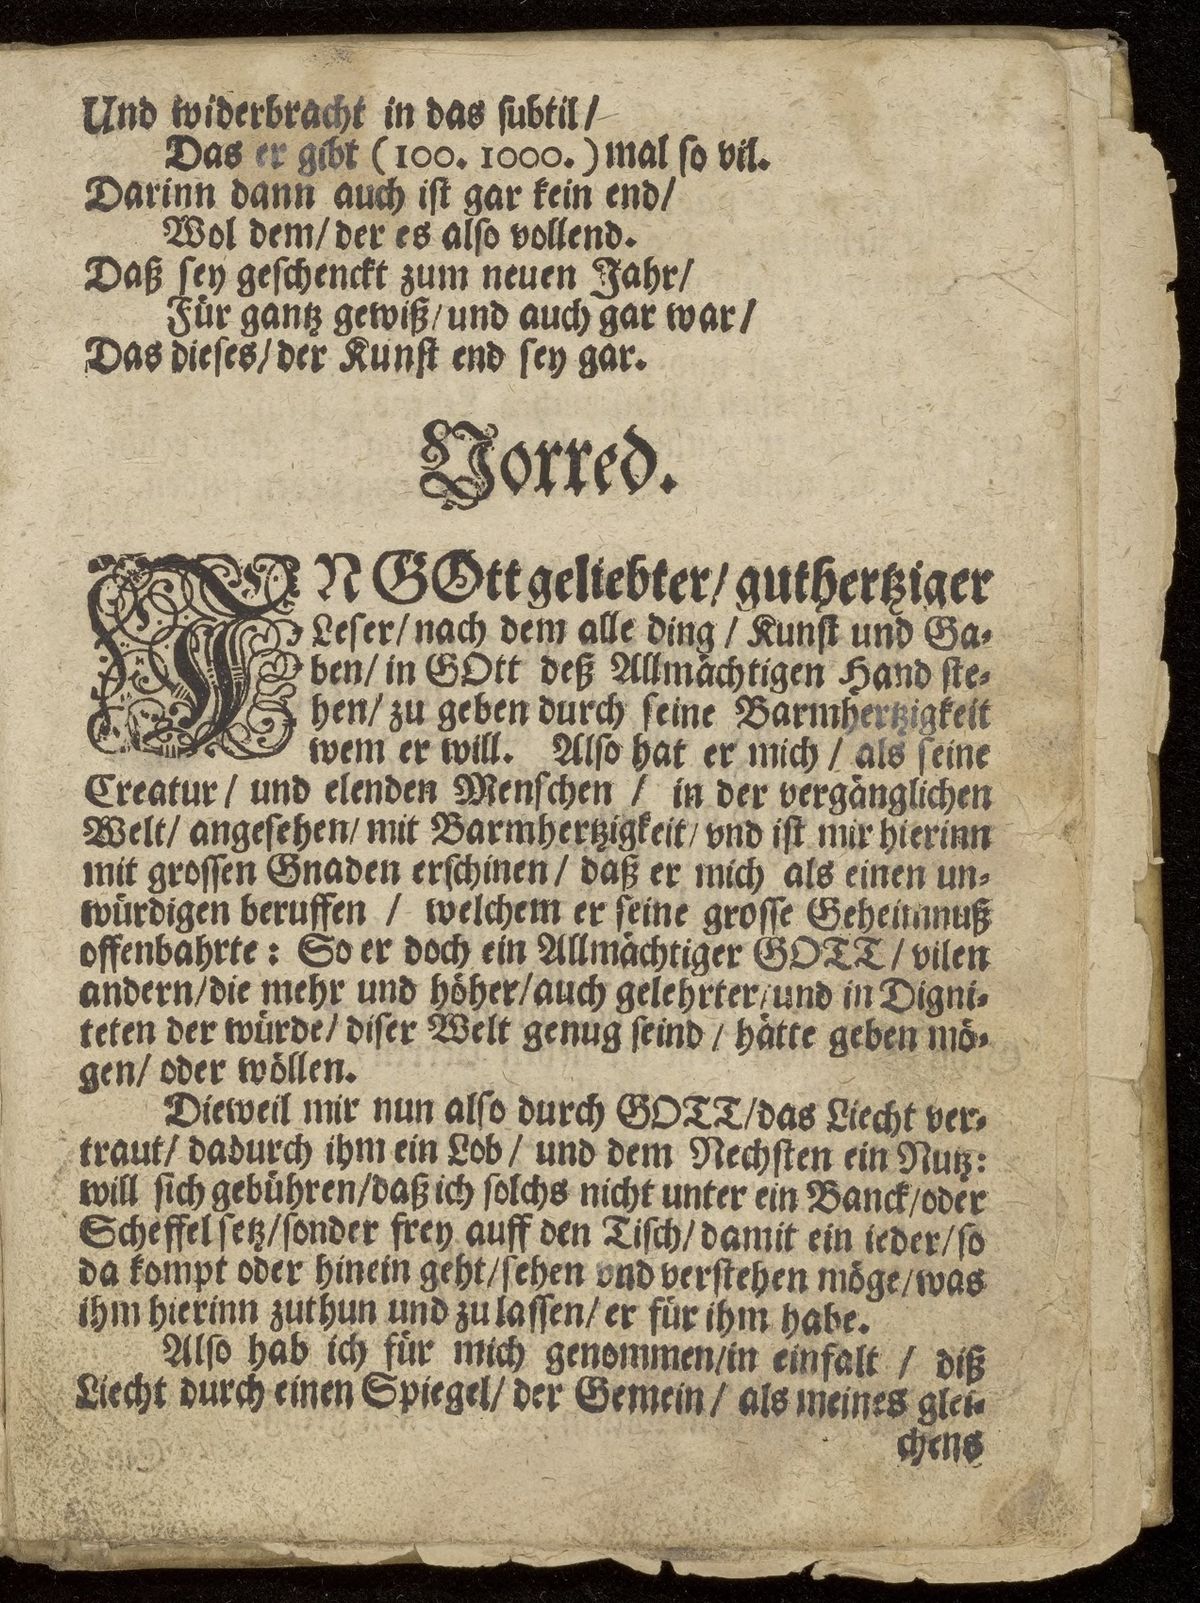 Und widerbracht in das subtil/
Das er gibt (100. 1000.) mal so vil.
Darinn dann auch ist gar kein end/
Wol dem/ der es also vollend.
Daß sey geschenckt zum neuen Jahr/
Für gantz gewiß/ und auch gar war/
Das dieses/ der Kunst end sey gar.
Vorred.
IN GOtt geliebter/ guthertziger
Leser/ nach dem alle ding / Kunst und Ga-
ben/ in GOtt deß Allmächtigen Hand ste-
hen/ zu geben durch seine Barmhertzigkeit
wem er will. Also hat er mich / als seine
Creatur / und elenden Menschen / in der vergänglichen
Welt/ angesehen/ mit Barmhertzigkeit/ vnd ist mir hierinn
mit grossen Gnaden erschinen / daß er mich als einen un-
würdigen beruffen / welchem er seine grosse Geheimnuß
offenbahrte : So er doch ein Allmächtiger GOTT / vilen
andern/ die mehr und höher/ auch gelehrter/ und in Digni-
teten der würde/ diser Welt genug seind / hätte geben mö-
gen/ oder wöllen.
Dieweil mir nun also durch GOTT/ das Liecht ver-
traut/ dadurch ihm ein Lob / und dem Nechsten ein Nutz:
will sich gebühren/ daß ich solchs nicht unter ein Banck/ oder
Scheffel setz/ sonder frey auff den Tisch/ damit ein ieder/ so
da kompt oder hinein geht/ sehen vnd verstehen möge/ was
ihm hierinn zuthun und zu lassen/ er für ihm habe.
Also hab ich für mich genommen/ in einfalt / diß
Liecht durch einen Spiegel/ der Gemein / als meines glei-
chens